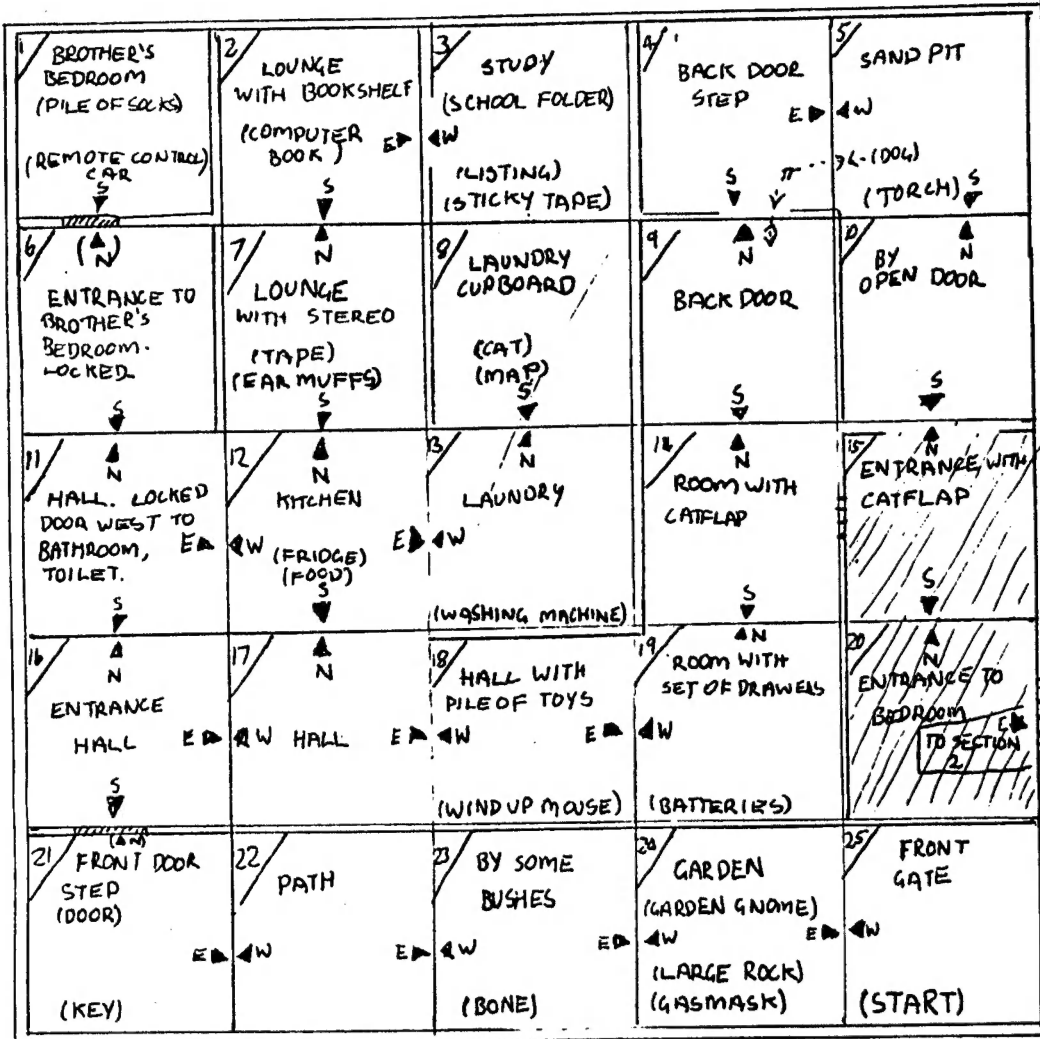 1
BROTHER'S
BEDROOM
(PILE OF SOCKS)
(REMOTE CONTROL)
CAR
S
2
LOUNGE
WITH BOOKSHELF
(COMPUTER
BOOK)
E
S
3
STUDY
(SCHOOL FOLDER)
W
(LISTING)
(STICKY TAPE)
4
BACK DOOR
STEP
E
S
5
SAND PIT
W
(DOG)
S
(TORCH)
6
(N)
ENTRANCE TO
BROTHER'S
BEDROOM.
LOCKED
S
7
N
LOUNGE
WITH STEREO
(TAPE)
(EAR MUFFS)
S
8
LAUNDRY
CUPBOARD
(CAT)
(MAP)
S
9
N
BACK DOOR
S
10
N
BY
OPEN DOOR
S
11
N
HALL. LOCKED
DOOR WEST TO
BATHROOM,
TOILET.
E
S
12
N
KITCHEN
W
E
(FRIDGE)
(FOOD)
S
13
N
LAUNDRY
W
(WASHING MACHINE)
14
N
ROOM WITH
CATFLAP
S
15
N
ENTRANCE WITH
CATFLAP
S
16
N
ENTRANCE
HALL
E
S
17
N
W
HALL
E
18
HALL WITH
PILE OF TOYS
W
E
(WIND UP MOUSE)
19
N
ROOM WITH
SET OF DRAWERS
W
(BATTERIES)
20
N
ENTRANCE TO
BEDROOM
E
TO SECTION
2
21
(N)
FRONT DOOR
STEP
(DOOR)
E
(KEY)
22
PATH
W
E
23
BY SOME
BUSHES
W
E
(BONE)
24
GARDEN
(GARDEN GNOME)
W
E
(LARGE ROCK)
(GASMASK)
25
FRONT
GATE
W
(START)